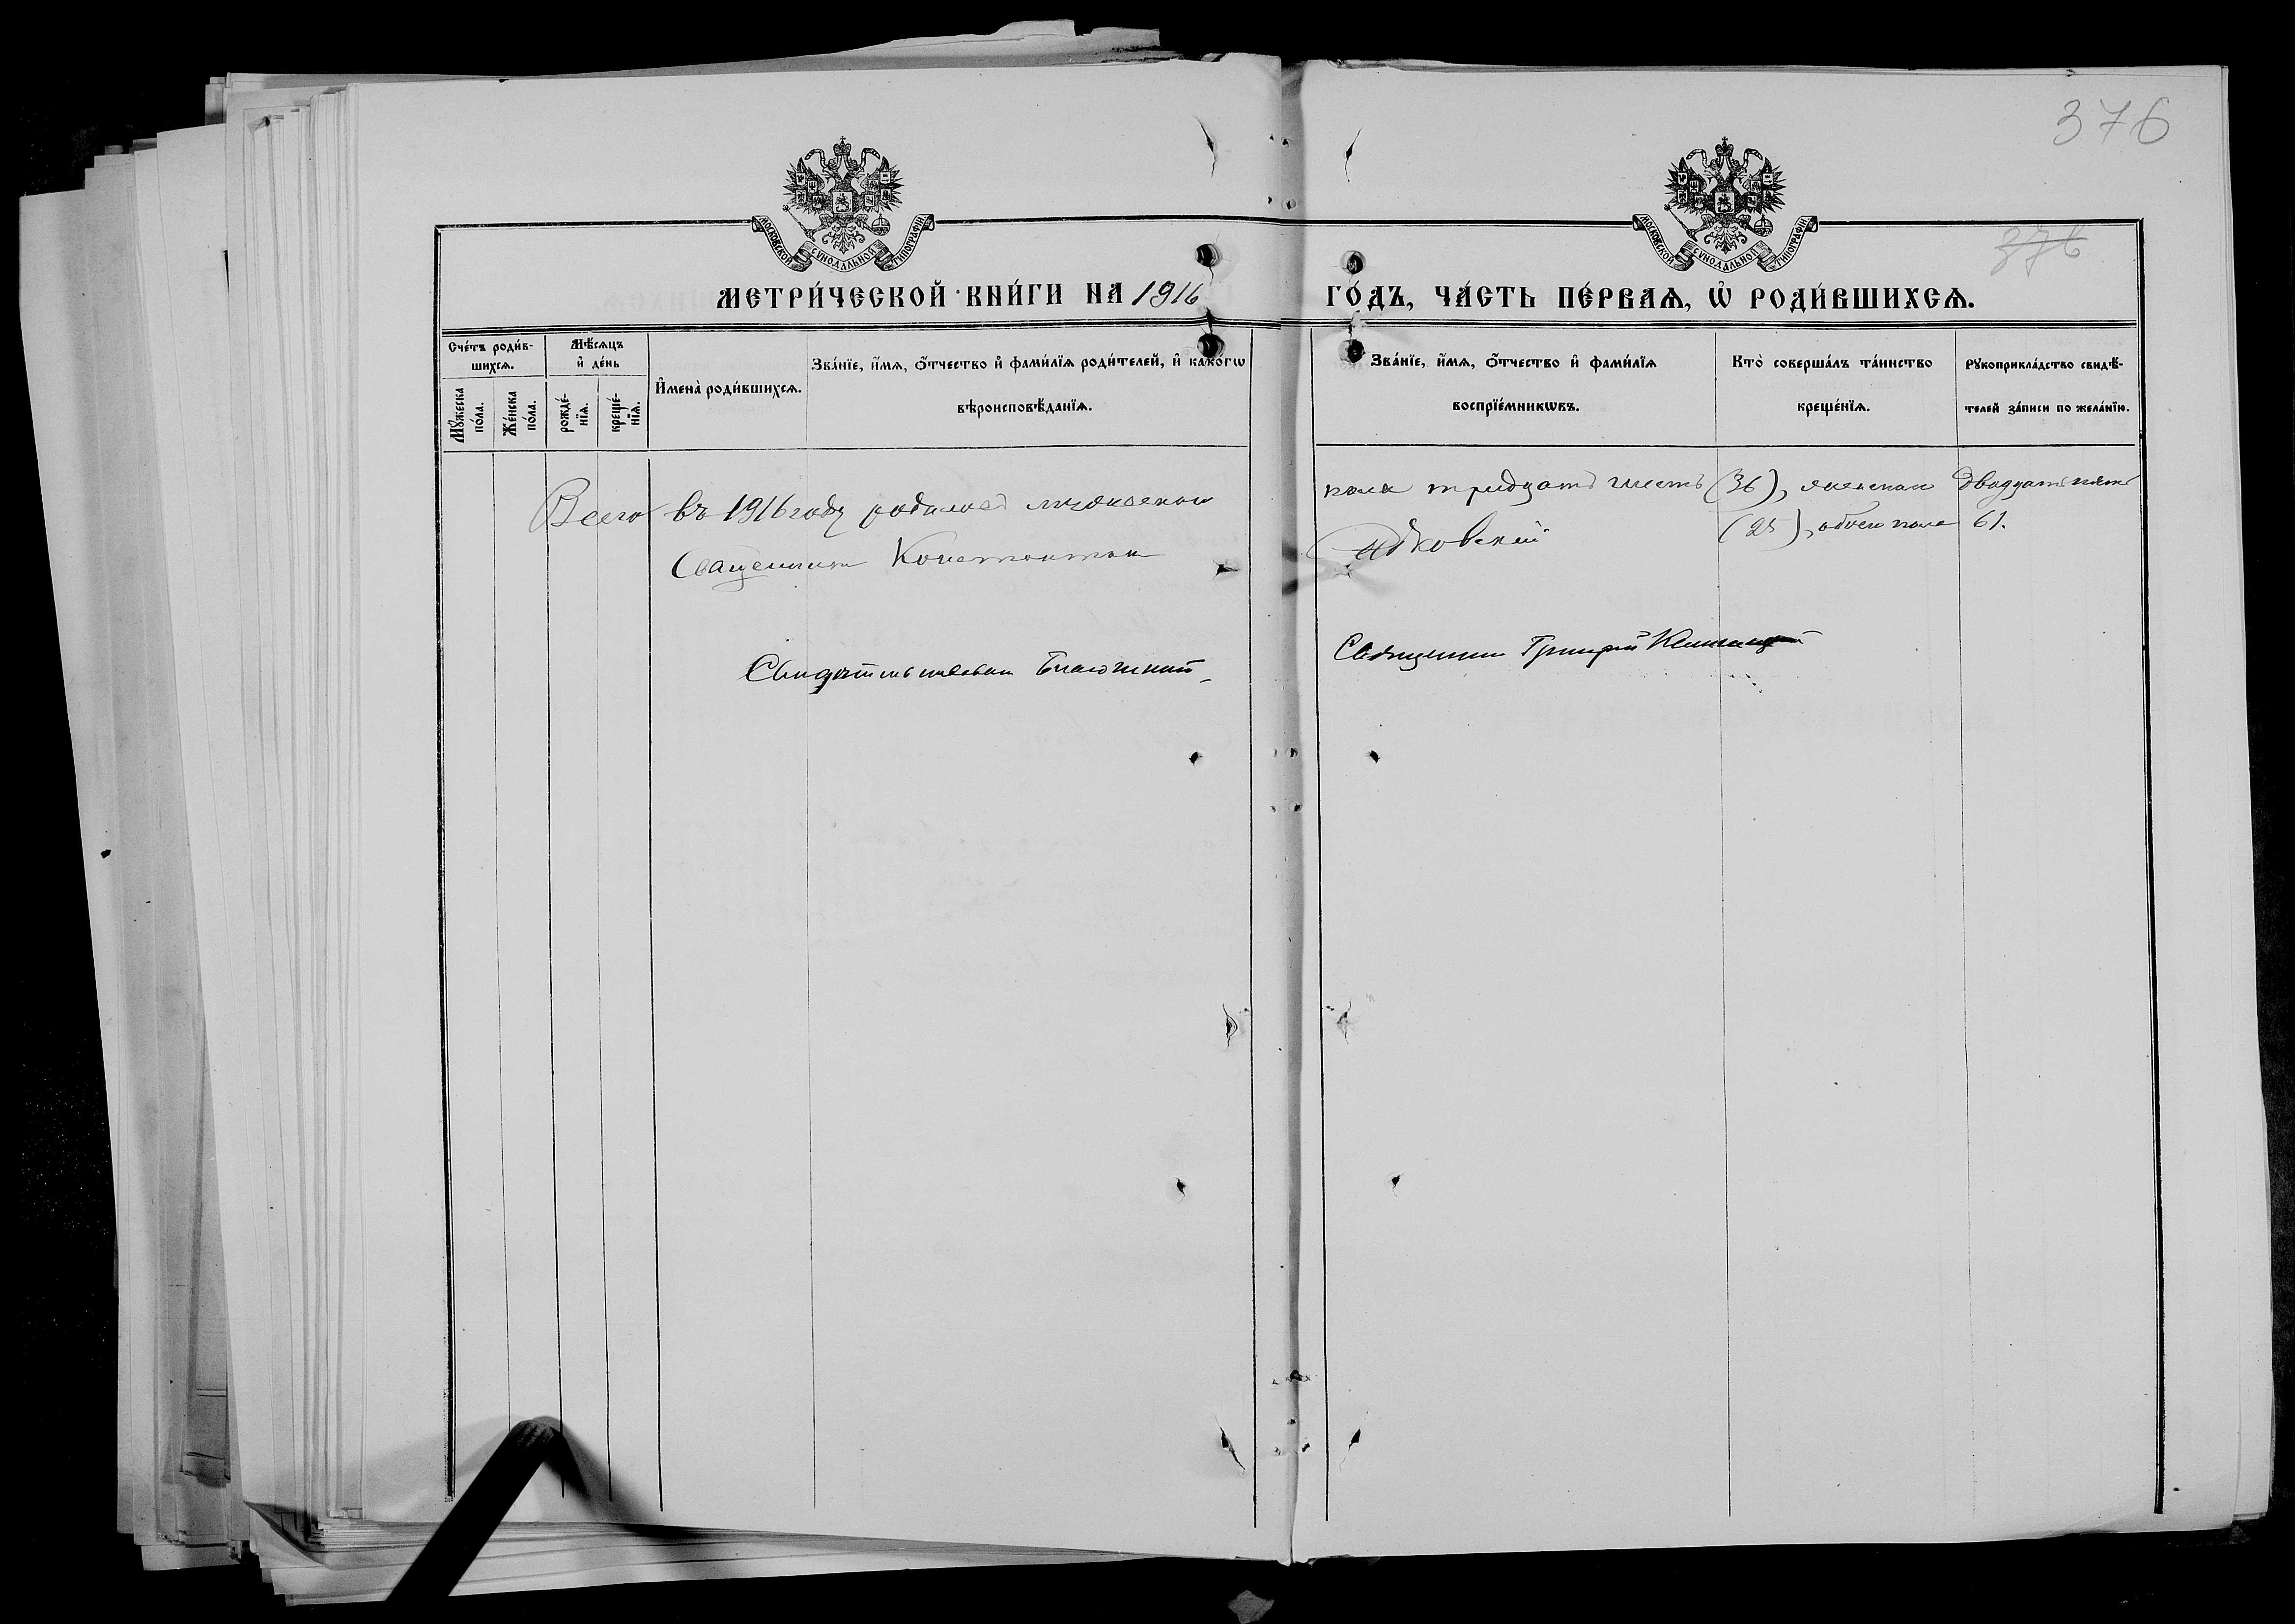 376
МОСКОВСКОЙ СѴНОДАЛЬНОЙ ТИПОГРАФІИ
МОСКОВСКОЙ СѴНОДАЛЬНОЙ ТИПОГРАФІИ
376
МЕТРИ́ЧЕСКОЙ КНИ́ГИ НА 1916 ГО́ДЪ, ЧА́СТЬ ПЕ́РВАЯ, Ѡ҆ РОДИ́ВШИХСЯ.
Сче́тъ роди́в-
шихся.
Мꙋ́жеска по́ла.
Же́нска по́ла.
Мѣ́сяцъ и҆ де́нь
рожде́-нїя.
креще́-нїя.
И҆мена̀ роди́вшихся.
Зва́нїе, и҆́мя, ѻ҆́тчество и҆ фами́лїя роди́телей, и҆ како́гѡ
вѣроисповѣ́данїя.
Зва́нїе, и҆́мя, ѻ҆́тчество и҆ фами́лїя
воспрїе́мникѡвъ.
Кто̀ соверша́лъ та́инство
креще́нїя.
Рꙋкоприкла́дство свидѣ́-
телей за́писи по жела́нїю.
Всего въ 1916 году родилось мужескаго пола тридцать шесть (36), женскаго двадцать пять
(25), обоего пола 61.
Священникъ Константинъ
Свидѣтельствовалъ Благочинный,
Священникъ Григорій